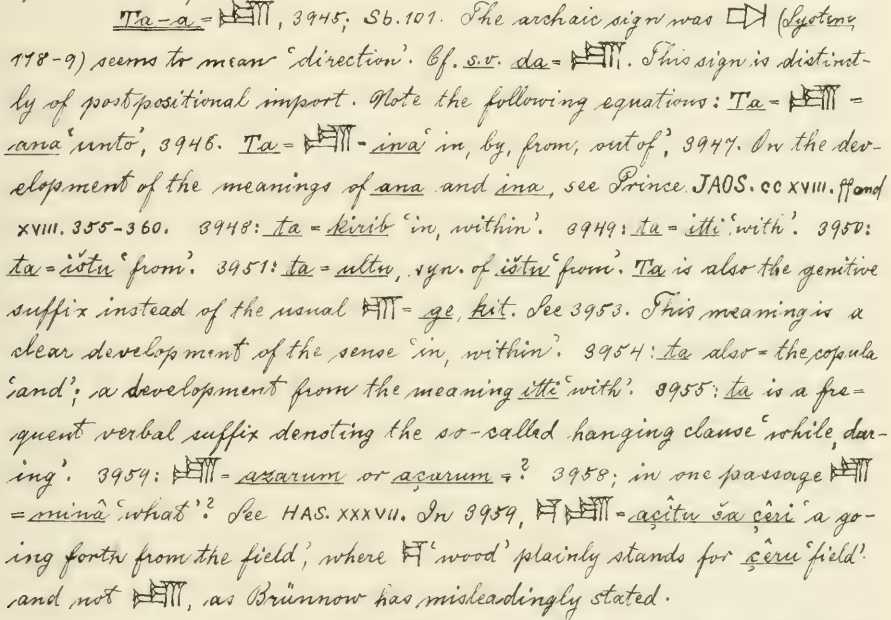 Ta-a = 𒋫, 3945; Sb. 101. The archaic sign was (System,
178-9) seems to mean ‘direction’. Cf. s.v. da = 𒋫. This sign is distinct-
ly of postpositional import. Note the following equations: Ta = 𒋫 =
ana ‘unto’, 3946. Ta = 𒋫 = ina ‘in, by, from, out of’, 3947. On the dev-
elopment of the meanings of ana and ina, see Prince JAOS. cc XVIII. ff and
XVIII. 355-360. 3948: ta = kirib ‘in, within’. 3949: ta = itti ‘with’. 3950:
ta = ištu ‘from’. 3951: ta = ultu, syn. of ištu ‘from’. Ta is also the genitive
suffix instead of the usual 𒆤 = ge, kit. See 3953. This meaning is a
clear development of the sense ‘in, within’. 3954: ta also = the copula
‘and’; a development from the meaning itti ‘with’. 3955: ta is a fre-
quent verbal suffix denoting the so-called hanging clause ‘while, dur-
ing’. 3959: 𒋫 = azarum or açarum = ? 3958; in one passage 𒋫
= minâ ‘what’? See HAS. XXXVII. In 3959, 𒄑 𒋫 = açîtu ša çêri ‘a go-
ing forth from the field’, where 𒄑 ‘wood’ plainly stands for çêru ‘field’
and not 𒋫, as Brünnow has misleadingly stated.